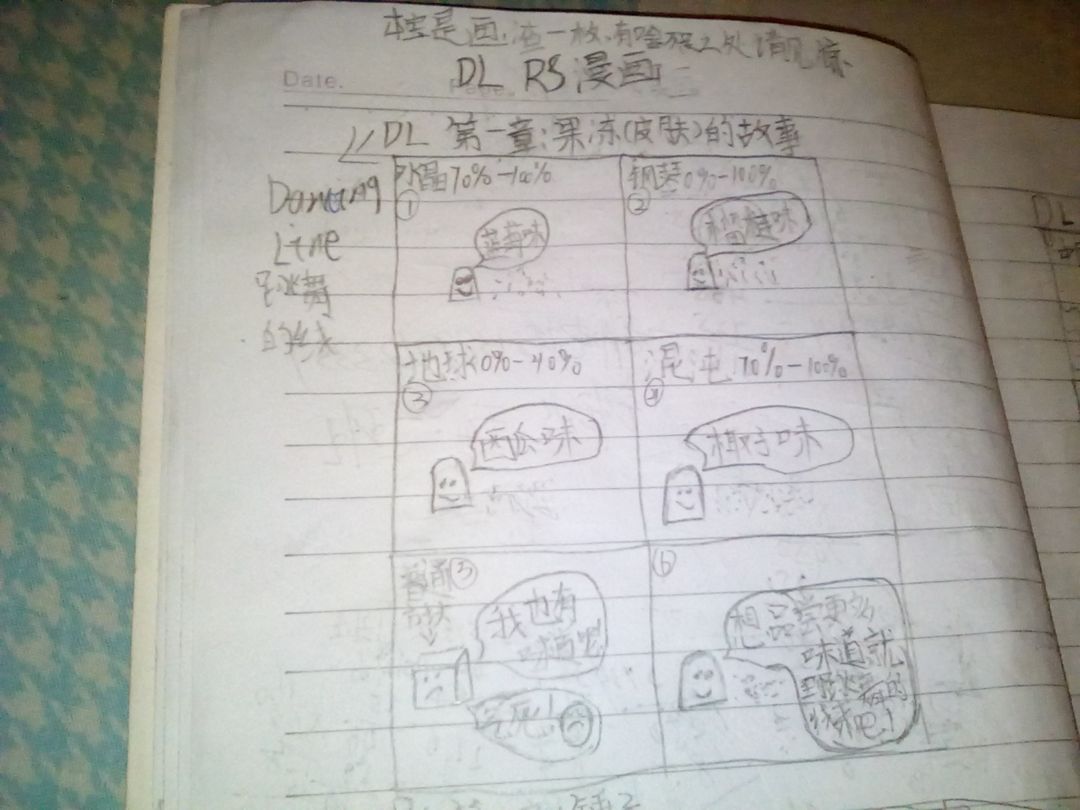 本宝是画渣一枚,有啥不足之处请见谅
Date.
DL RS漫画
DL 第一章:果冻(皮肤)的故事
Dancing
Line
跳舞
的线
水晶70%-100%
①
蓝莓味
钢琴0%-100%
②
榴梿味
地球0%-40%
③
西瓜味
混沌70%-100%
④
椰子味
普通③
方块
我也有
味道呢!
气死!
⑥
想品尝更多
味道就
跳舞的
线吧!
DL